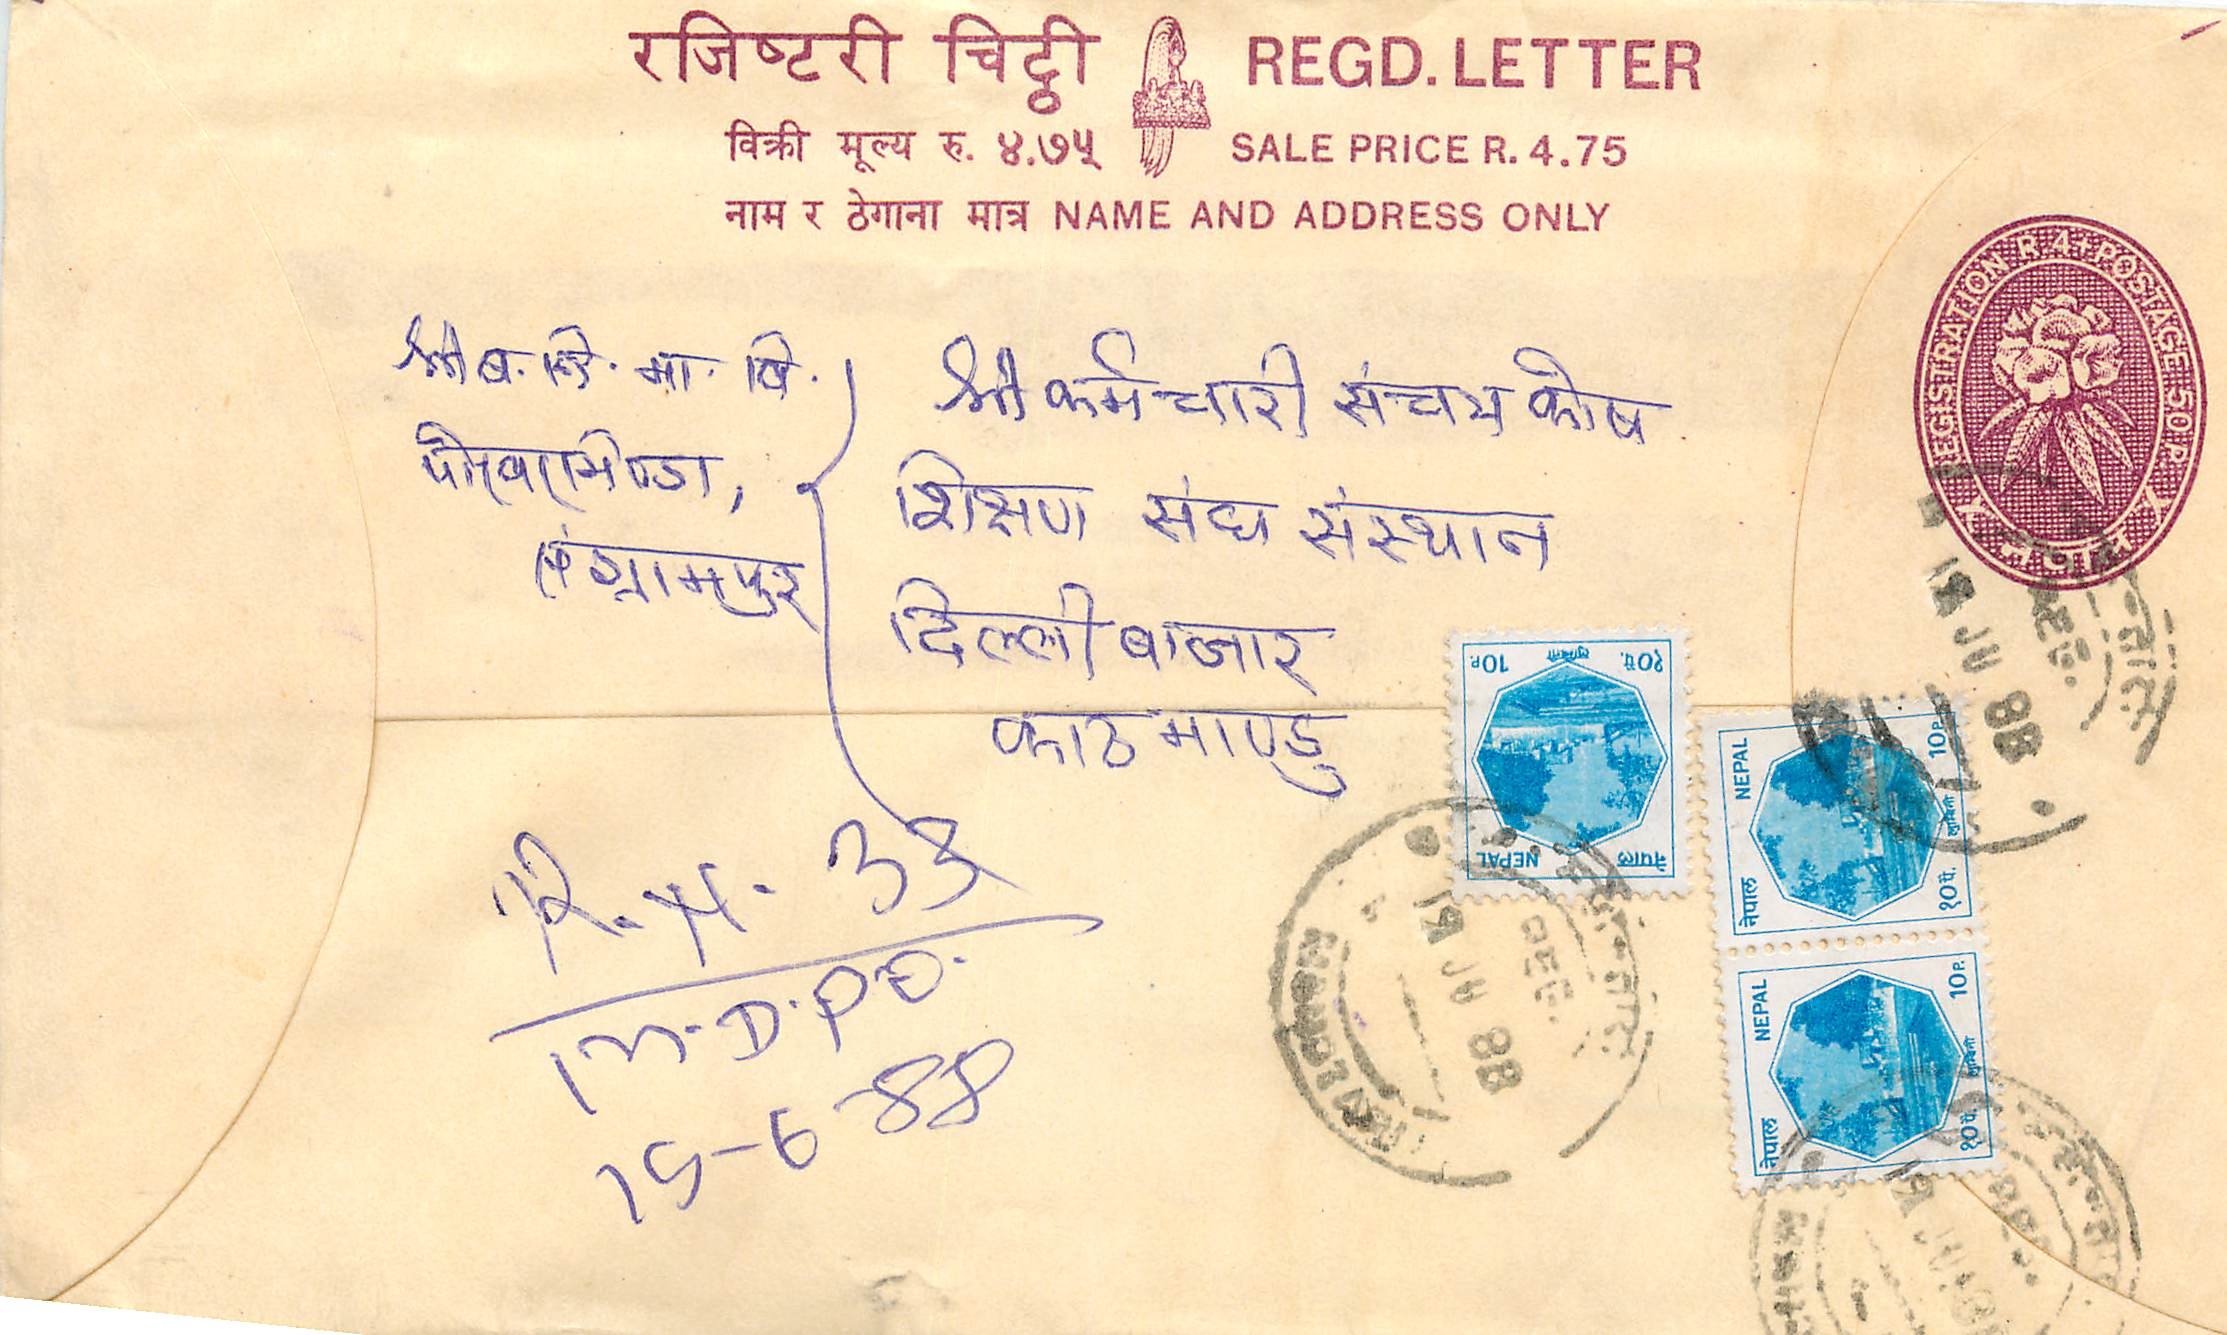 रजिष्टरी चिट्ठी REGD. LETTER
विक्री मूल्य रु. ४.७५ SALE PRICE R. 4.75
नाम र ठेगाना मात्र NAME AND ADDRESS ONLY
REGISTRATION R.4+POSTAGE 50 P.
नेपाल
श्री ब. नि. मा. वि.
पोखराभिण्डा,
संग्रामपुर
श्री कर्मचारी संचय कोष
शिक्षण संघ संस्थान
दिल्ली बाजार
काठमाण्डु
10P. लुम्बिनी १०पै.
NEPAL नेपाल
NEPAL 10P.
नेपाल १०पै. लुम्बिनी
NEPAL 10P.
नेपाल १०पै. लुम्बिनी
R. N. 33
M.D.P.O.
15-6-88
JU 88
JU 88